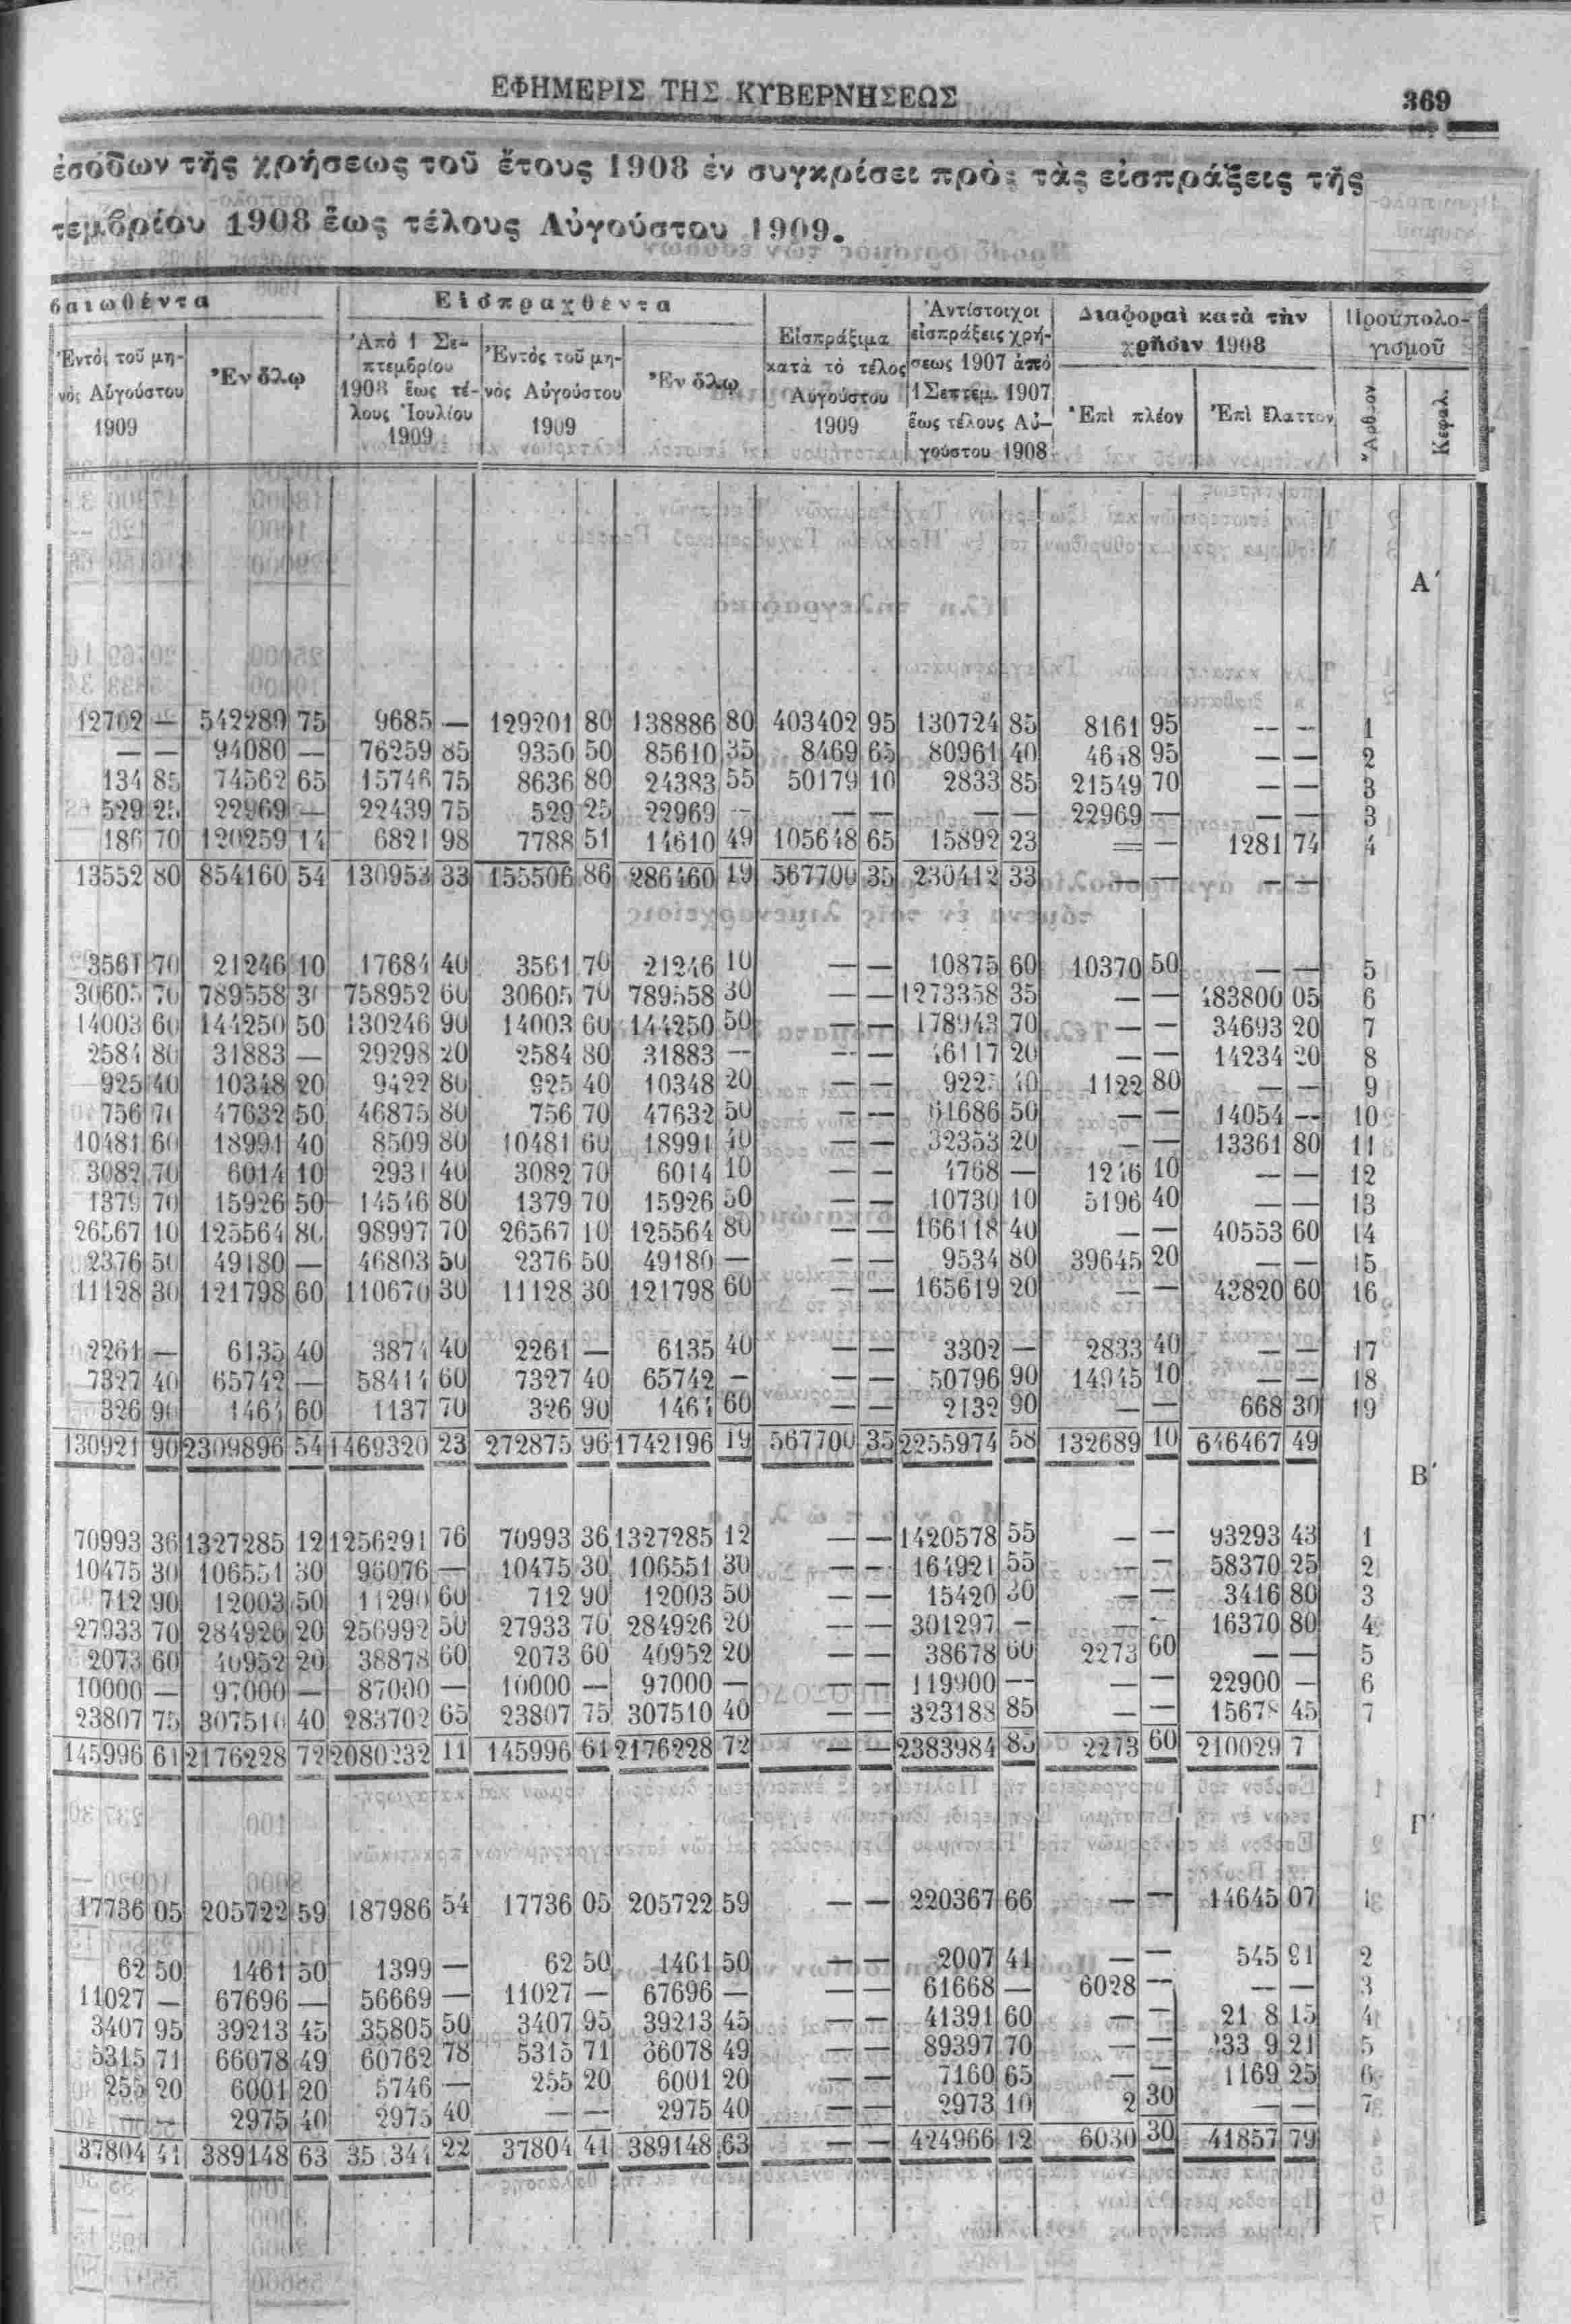 ΕΦΗΜΕΡΙΣ ΤΗΣ ΚΥΒΕΡΝΗΣΕΩΣ 369
ἐσόδων τῆς χρήσεως τοῦ ἔτους 1908 ἐν συγκρίσει πρὸς τὰς εἰσπράξεις τῆς
τεμβρίου 1908 ἕως τέλους Αὐγούστου 1909.
βαιωθέντα
Ἐντὸς τοῦ μη-
νὸς Αὐγούστου
1909
Ἐν ὅλῳ
Εἰσπραχθέντα
Ἀπὸ 1 Σε-
πτεμβρίου
1908 ἕως τέ-
λους Ἰουλίου
1909
Ἐντὸς τοῦ μη-
νὸς Αὐγούστου
1909
Ἐν ὅλῳ
Εἰσπράξιμα
κατὰ τὸ τέλος
Αὐγούστου
1909
Ἀντίστοιχοι
εἰσπράξεις χρή-
σεως 1907 ἀπὸ
1 Σεπτεμ. 1907
ἕως τέλους Αὐ-
γούστου 1908
Διαφοραὶ κατὰ τὴν
χρῆσιν 1908
Ἐπὶ πλέον
Ἐπὶ ἔλαττον
Προϋπολο-
γισμοῦ
Ἄρθρον
Κεφαλ.
Α΄
12702 — 542289 75 9685 — 129201 80 138886 80 403402 95 130724 85 8161 95 — — 1
— — 94080 — 76259 85 9350 50 85610 35 8469 65 80961 40 4648 95 — — 2
134 85 74562 65 15746 75 8636 80 24383 55 50179 10 2833 85 21549 70 — — 3
529 25 22969 — 22439 75 529 25 22969 — — — — — 22969 — — — 3
186 70 120259 14 6821 98 7788 51 14610 49 105648 65 15892 23 — — 1281 74 4
13552 80 854160 54 130953 33 155506 86 286460 19 567700 35 230412 33 — — — —
3561 70 21246 10 17684 40 3561 70 21246 10 — — 10875 60 10370 50 — — 5
30605 70 789558 30 758952 60 30605 70 789558 30 — — 1273358 35 — — 483800 05 6
14003 60 144250 50 130246 90 14003 60 144250 50 — — 178943 70 — — 34693 20 7
2584 80 31883 — 29298 20 2584 80 31883 — — — 46117 20 — — 14234 20 8
925 40 10348 20 9422 80 925 40 10348 20 — — 9225 40 1122 80 — — 9
756 70 47632 50 46875 80 756 70 47632 50 — — 61686 50 — — 14054 — 10
10481 60 18991 40 8509 80 10481 60 18991 40 — — 32353 20 — — 13361 80 11
3082 70 6014 10 2931 40 3082 70 6014 10 — — 4768 — 1246 10 — — 12
1379 70 15926 50 14546 80 1379 70 15926 50 — — 10730 10 5196 40 — — 13
26567 10 125564 80 98997 70 26567 10 125564 80 — — 166118 40 — — 40553 60 14
2376 50 49180 — 46803 50 2376 50 49180 — — — 9534 80 39645 20 — — 15
11128 30 121798 60 110670 30 11128 30 121798 60 — — 165619 20 — — 43820 60 16
2261 — 6135 40 3874 40 2261 — 6135 40 — — 3302 — 2833 40 — — 17
7327 40 65742 — 58414 60 7327 40 65742 — — — 50796 90 14945 10 — — 18
326 90 1464 60 1137 70 326 90 1464 60 — — 2132 90 — — 668 30 19
130921 90 2309896 54 1469320 23 272875 96 1742196 19 567700 35 2255974 58 132689 10 646467 49
Β΄
70993 36 1327285 12 1256291 76 70993 36 1327285 12 — — 1420578 55 — — 93293 43 1
10475 30 106551 30 96076 — 10475 30 106551 30 — — 164921 55 — — 58370 25 2
712 90 12003 50 11290 60 712 90 12003 50 — — 15420 30 — — 3416 80 3
27933 70 284926 20 256992 50 27933 70 284926 20 — — 301297 — — — 16370 80 4
2073 60 40952 20 38878 60 2073 60 40952 20 — — 38678 60 2273 60 — — 5
10000 — 97000 — 87000 — 10000 — 97000 — — — 119900 — — — 22900 — 6
23807 75 307510 40 283702 65 23807 75 307510 40 — — 323188 85 — — 15678 45 7
145996 61 2176228 72 2080232 11 145996 61 2176228 72 — — 2383984 85 2273 60 210029 7
Γ΄
17736 05 205722 59 187986 54 17736 05 205722 59 — — 220367 66 — — 14645 07 1
62 50 1461 50 1399 — 62 50 1461 50 — — 2007 41 — — 545 91 2
11027 — 67696 — 56669 — 11027 — 67696 — — — 61668 — 6028 — — — 3
3407 95 39213 45 35805 50 3407 95 39213 45 — — 41391 60 — — 21 8 15 4
5315 71 66078 49 60762 78 5315 71 66078 49 — — 89397 70 — — 233 9 21 5
255 20 6001 20 5746 — 255 20 6001 20 — — 7160 65 — — 1169 25 6
— — 2975 40 2975 40 — — 2975 40 — — 2973 10 2 30 — — 7
37804 41 389148 63 35 344 22 37804 41 389148 63 — — 424966 12 6030 30 41857 79